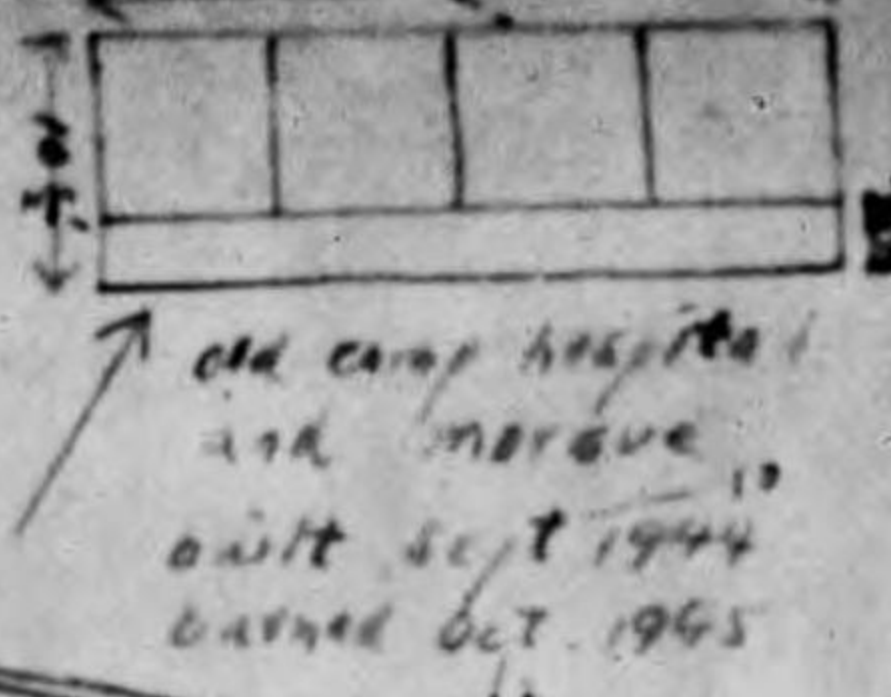 old camp hospital
and morgue
built sept 1944
burned Oct. 1945